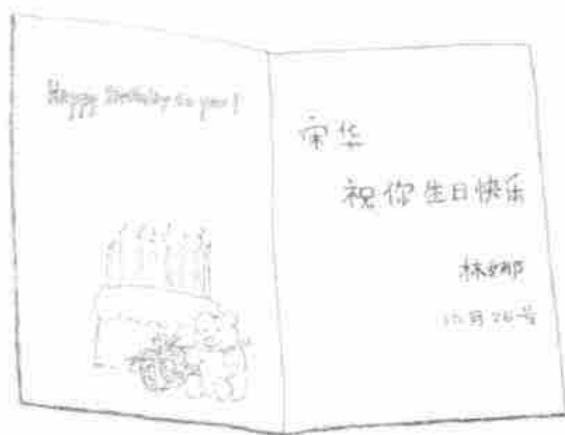 Happy Birthday to you!
宋华
祝你生日快乐
林娜
月26号